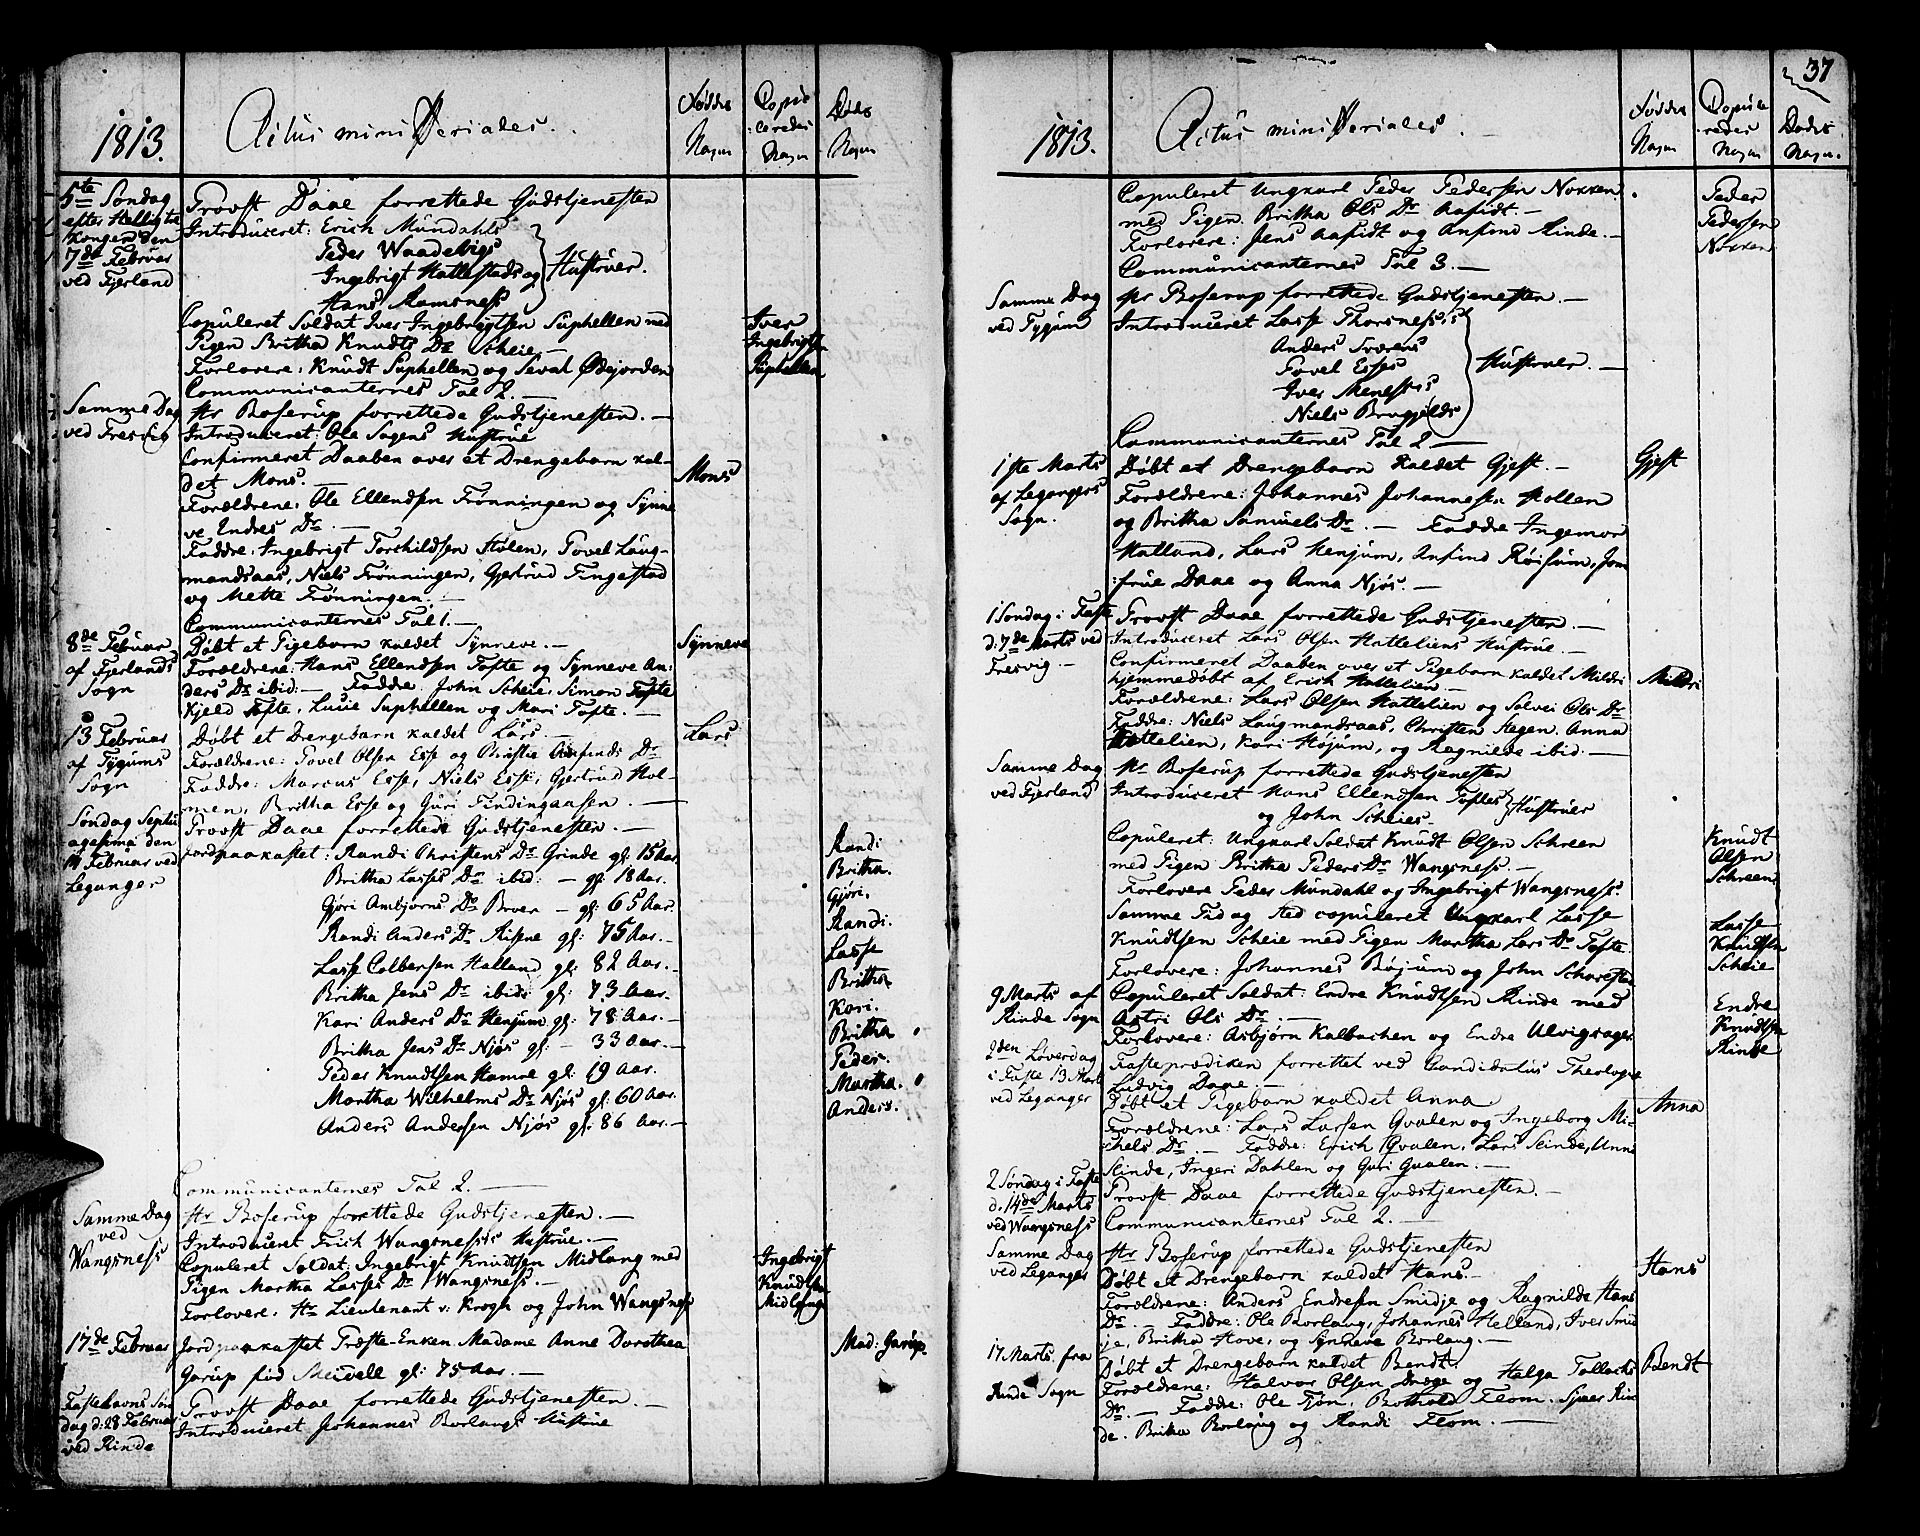 1813.
Actus ministeriales.
Føddes Nagn
Copulceredes Nagn
Dødes Nagn
5te Søndag
efter Hellig tre
Konger den
7de Februar
ved Fjerland
Provst Daae forrettede Gudstjenesten
Introduceret: Erich Mundahls
Peder Waadevigs
Ingebrigt Hattestads og
Hans Ramsness
Hustruer.
Copuleret Soldat Iver Ingebrigtsen Suphellen med
Pigen Britha Knudts Dr Scheie —
Forlovere: Knudt Suphellen og Sevat Ødejorden
Communicanternes Tal 2. —
Iver
Ingebrigtsen
Suphellen
Samme Dag
ved Fresvig
Hr Boserup forrettede Gudstjenesten. —
Introduceret: Ole Sogens Hustrue
Confirmeret Daaben over et Drengebarn kal-
det Mons. —
Forældrene: Ole Ellendsen Frønningen og Synne
ve Endres Dr. —
Faddre: Ingebrigt Torchildsen Stølen, Povel Laug-
mandsaas, Niels Frønningen, Gjertrud Tingestad
og Mette Frønningen. —
Communicanternes Tal 1. —
Mons
8de Februar
af Fjerlands
Sogn
Døbt et Pigebarn kaldet Synneve. —
Forældrene: Hans Ellendsen Tofte og Synneve An-
ders Dr ibid. — Faddre: John Scheie, Simon Tofte
Kjeld Tofte, Lucie Suphellen og Mari Tofte. —
Synneve
13 Februar
af Tygums
Sogn
Døbt et Drengebarn kaldet Lars. —
Forældrene: Povel Olsen Esse og Christie Anfinds Dr
Faddre: Marcus Esse, Niels Esse, Gjertrud Hol-
men, Britha Esse og Guri Findingaasen. —
Lars
Søndag Septu
agesima den
14 Februar ved
Leganger
Provst Daae forrettede Gudstjenesten. —
Jordpaakastet: Randi Christens Dr Grinde gl: 15 Aar.
Britha Lasses Dr ibid: — gl: 18 Aar.
Gjøri Ambjørns Dr Bruer — gl: 65 Aar.
Randi Anders Dr Risene gl: 75 Aar. —
Lasse Colbensen Halland gl: 82 Aar. —
Britha Jens Dr ibid: gl: 73 Aar. —
Kari Anders Dr Henjum gl: 78 Aar. —
Britha Jens Dr Njøs gl: — 33 Aar. —
Peder Knudtsen Hamre gl: 19 Aar. —
Martha Wilhelms Dr Njøs gl: 60 Aar.
Anders Andersen Njøs gl: 86 Aar. —
Communicanternes Tal 2. —
Randi
Britha.
Gjøri.
Randi.
Lasse
Britha
Kari.
Britha
Peder.
Martha.
Anders.
Samme Dag
ved
Wangsness
Hr Boserup forrettede Gudstjenesten. —
Introduceret Erich Wangsness's Hustrue. —
Copuleret Soldat: Ingebrigt Knudtsen Midlang med
Pigen Martha Lasses Dr Wangsness. —
Forlovere: Hr Lieutenant v: Krogh og John Wangsness
Ingebrigt
Knudtsen
Midlang
17de Februar
Jordpaakastet Præste-Enken Madame Anne Dorothea
Garup fød Meidell gl: 75 Aar.
Mad: Garup
Fastelavns Søn
dag d: 28 Februar
ved Rinde
Provst Daae forrettede Gudstjenesten. —
Introduceret Johannes Borlaugs Hustrue
37
1813.
Actus ministeriales.
Føddes Nagn
Copuleredes Nagn
Dødes Nagn.
Copuleret Ungkarl Peder Pedersen Nokken
med Pigen Britha Ols Dr Aafidt. —
Forlovere: Jens Aafidt og Anfind Rinde. —
Communicanternes Tal 3. —
Peder
Pedersen
Nokken
Samme Dag
ved Tygum
Hr Boserup forrettede Gudstjenesten. —
Introduceret Lasse Thorsness's
Anders Sværens
Povel Esses
Iver Meness's
Niels Brugjelds
Hustruer. —
Communicanternes Tal 2. —
1ste Marts
af Legangers
Sogn.
Døbt et Drengebarn kaldet Gjest. —
Forældrene: Johannes Johannesen Hollen
og Britha Samuels Dr. — Faddre Ingemor
Hatland, Lars Henjum, Anfind Røisum, Jom
frue Daae og Anna Njøs. —
Gjest
1 Søndag i Faste
d: 7de Marts ved
Fresvig —
Provst Daae forrettede Gudstjenesten. —
Introduceret Lars Olsen Hatteliens Hustrue. —
Confirmeret Daaben over et Pigebarn kaldet Mildri
hjemmedøbt af Erich Hattelien —
Forældrene: Lars Olsen Hattelien og Solvei Ols Dr
Faddre: Niels Laugmandsaas, Christen Hegen. Anna
Hattelien, Kari Højum, og Ragnilde ibid. —
Mildri
Samme Dag
ved Fjerland
Hr Boserup forrettede Gudstjenesten
Introduceret Hans Ellendsen Toftes
og John Scheies —
Hustruer
Copuleret: Ungkarl Soldat Knudt Olsen Schreen
med Pigen Britha Peders Dr Wangsness. —
Forlovere Peder Mundahl og Ingebrigt Wangsness.
Samme Tid og Sted copuleret Ungkarl Lasse
Knudtsen Scheie med Pigen Martha Lars Dr Tofte
Forlovere: Johannes Bøjum og John Scharestad
Knudt
Olsen
Schreen
Lasse
Knudtsen
Scheie
9 Marts af
Rinde Sogn
Copuleret Soldat: Endre Knudtsen Rinde med
Astri Ols Dr. —
Forlovere: Asbjørn Kalbachen og Endre Ulvigsager
Endre
Knudtsen
Rinde
2den Løverdag
i Faste 13 Mart
ved Leganger
Fasteprædiken forrettet ved Candidatus Theologiæ
Ludvig Daae. —
Døbt et Pigebarn kaldet Anna.
Forældrene: Lars Larsen Qvalen og Ingeborg Mi-
chels Dr. — Faddre: Erich Qvalen, Lars Stinde, Anna
Stinde, Ingeri Dahlen og Guri Qvalen. —
Anna
2 Søndag i Faste
d: 14de Marts
ved Wangsness
Provst Daae forrettede Gudstjenesten. —
Communicanternes Tal 2. —
Samme Dag
ved Leganger
Hr Boserup forrettede Gudstjenesten
Døbt et Drengebarn kaldet Hans. —
Forældrene: Anders Endresen Smidje og Ragnilde Hans
Dr. — Faddre: Ole Borlaug, Johannes Helland, Iver Smid
je, Britha Hove, og Synneve Borlaug. —
Hans
17 Marts fra
Rinde Sogn
Døbt et Drengebarn kaldet Bendt.
Forældrene: Halvor Olsen Dræge og Helga Tollachs
Dr. — Faddre: Ole Tjøn, Bothold Flom. Sjur Rin
de. Britha Borlaug og Randi Flom. —
Bendt